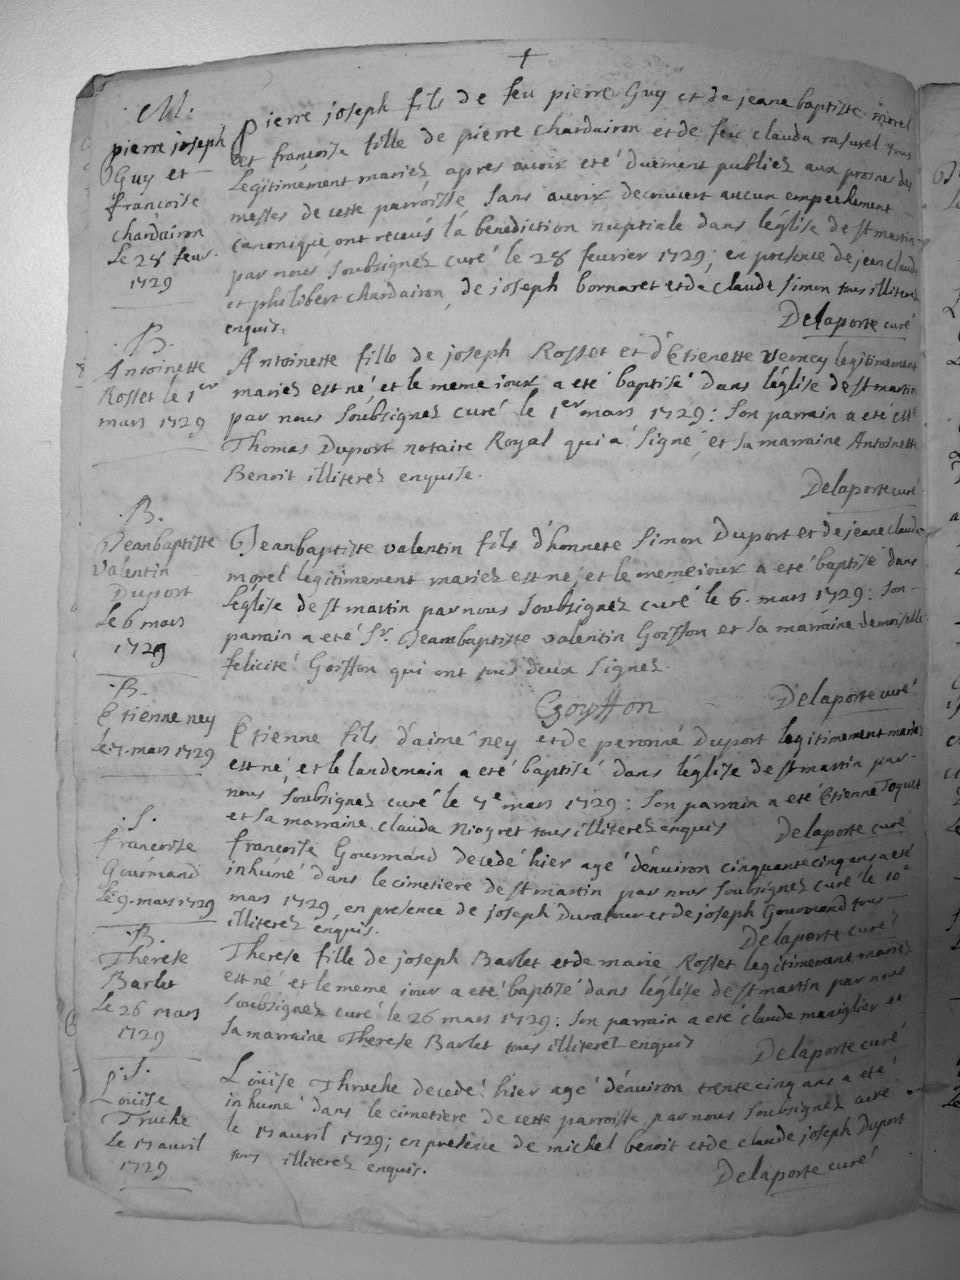 M.
pierre joseph
Guy et
francoise
chardairon
Le 28 feur.
1729
Pierre joseph fils de feu pierre Guy et de jeane baptiste morel
et francoise fille de pierre chardairon et de feu clauda rasurel tous
legitimement mariez apres avoir eté duëment publiez aux prosnes des
messes de cette parroisse sans avoir decouvert aucun empechement
canonique, ont receus la benediction nuptiale dans l'église de st martin
par nous soubsignez curé le 28 feurier 1729; en presence de jean claude
et philibert chardairon, de joseph bornaret et de claude simon tous illiterez
enquis.
Delaporte curé
B.
Antoinette
Rosset le 1er
mars 1729
Antoinette fille de joseph Rosset et d'Etienette verney legitimement
mariez est né, et le meme jour a eté baptisé dans l'église de st martin
par nous soubsignez curé le 1er mars 1729: son parrain a eté
Thomas Duport notaire Royal qui a signé, et sa marraine Antoinette
Benoit illiterez enquise.
Delaporte curé
B.
Jeanbaptiste
valentin
Duport
Le 6 mars
1729
Jeanbaptiste valentin fils d'honnete simon Duport et de jeane clauda
morel legitimement mariez est né, et le meme jour a eté baptisé dans
l'église de st martin par nous soubsignez curé le 6. mars 1729: son
parrain a eté Sr. Jeanbaptiste valentin Goisson et sa marraine demoiselle
felicité Goisson qui ont tous deux signez.
Goysson
Delaporte curé
B.
Etienne ney
Le 7. mars 1729
Etienne fils d'aimé ney et de peronne Duport legitimement mariez
est né, et le landemain a eté baptisé dans l'église de st martin par
nous soubsignez curé le 7e mars 1729: son parrain a eté Etienne Toquet
et sa marraine clauda Niogret tous illiterez enquis
Delaporte curé
S.
francoise
Gourmand
Le 9. mars 1729
francoise Gourmand decedé hier agé d'enuiron cinquante cinq ans a eté
inhumé dans le cimetiere de st martin par nous soubsignez curé le 10e
mars 1729, en presence de joseph Duratour et de joseph Gourmand tous
illiterez enquis.
Delaporte curé
B.
Therese
Barlet
Le 26 mars
1729
Therese fille de joseph Barlet et de marie Rosset legitimement mariez
est né et le meme jour a eté baptisé dans l'église de st martin par nous
soubsignez curé le 26 mars 1729: son parrain a eté claude maniglier et
sa marraine Therese Barlet tous illiterez enquis
Delaporte curé
S.
Loüise
Truche
Le 17 avril
1729
Loüise Thruche decedé hier agé d'enuiron trente cinq ans a eté
inhumé dans le cimetiere de cette parroisse par nous soubsignez curé
le 17 avril 1729; en presence de michel benoit et de claude joseph Duport
tous illiterez enquis.
Delaporte curé